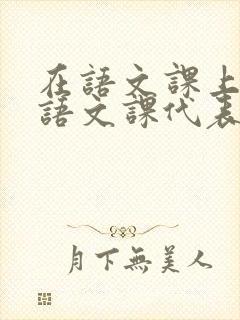 在語文課上
語文課代表
月下無美人